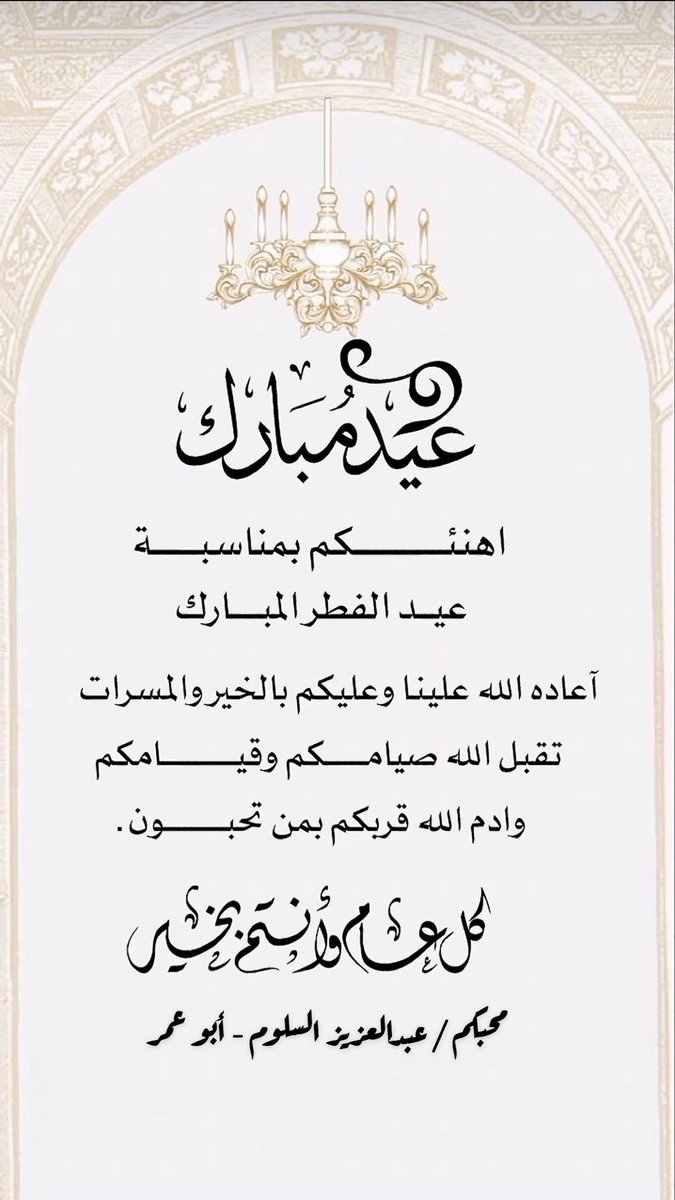 عيد مُبَارك
اهنئكم بمناسبة
عيد الفطر المبارك
آعاده الله علينا وعليكم بالخير والمسرات
تقبل الله صيامكم وقيامكم
وادم الله قربكم بمن تحبون.
كل عام وأنتم بخير
محبكم / عبدالعزيز السلوم - أبو عمر